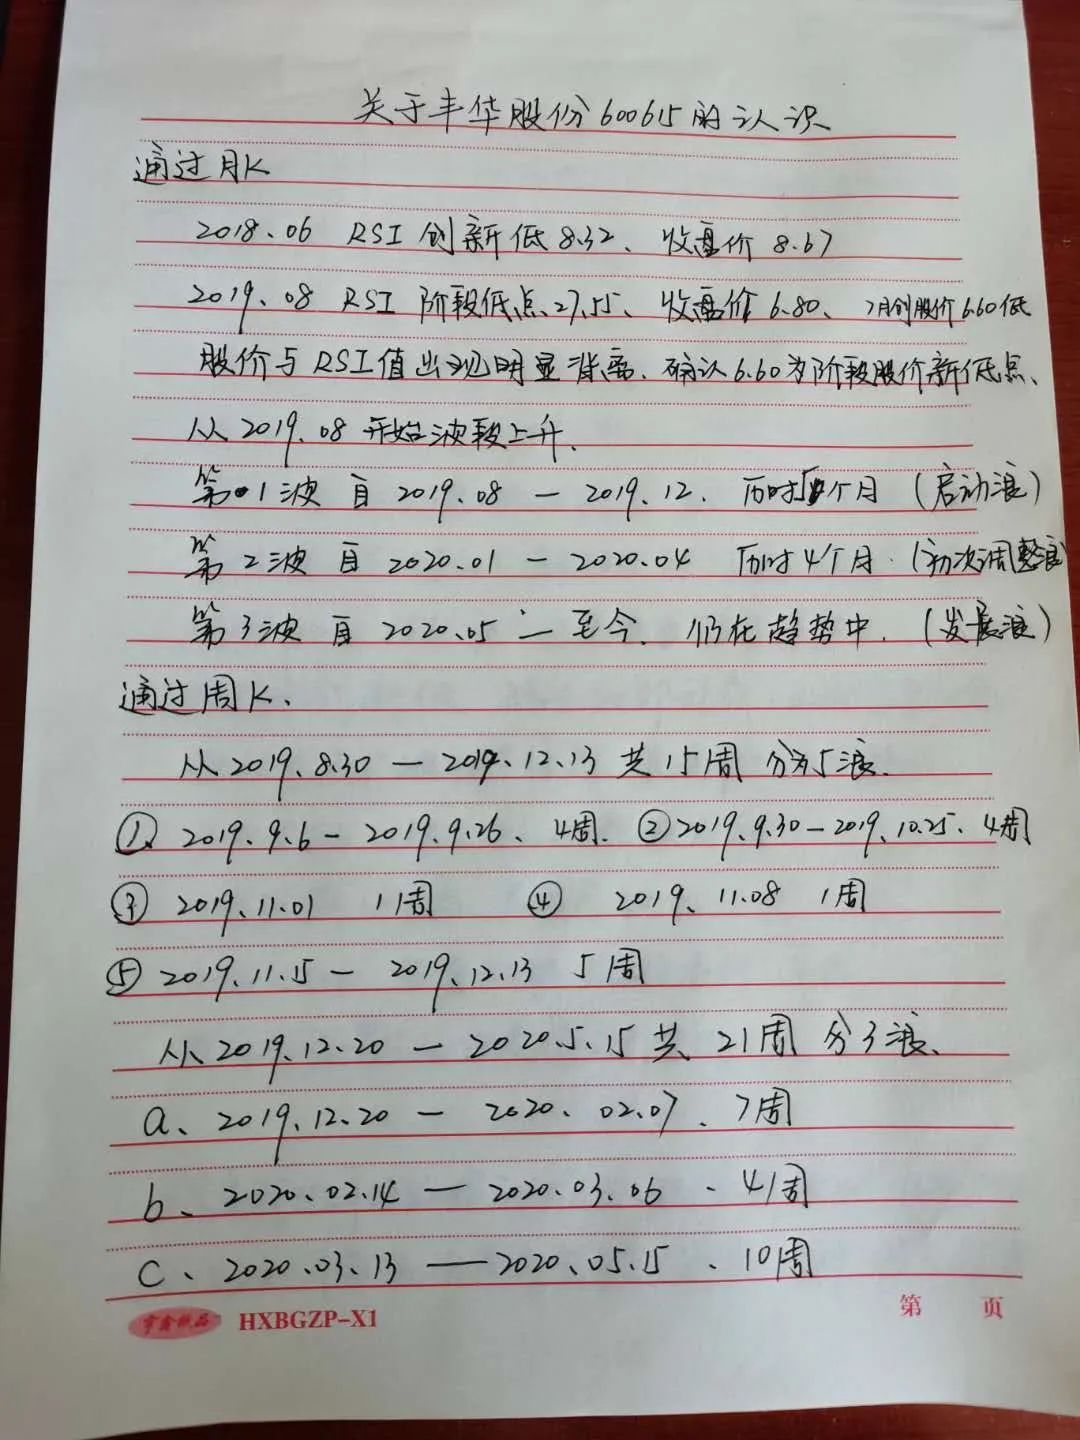 关于丰华股份600615的认识
通过月K
2018.06 RSI 创新低8.32、收盘价 8.67
2019.08 RSI 阶段低点27.55、收盘价6.80、7月创股价6.60低
股价与RSI值出现明显背离、确认6.60为阶段股价新低点、
从2019.08开始波段上升、
第1波 自2019.08 — 2019.12. 历时5个月 (启动浪)
第2波 自2020.01 — 2020.04 历时4个月.(初次调整浪)
第3波 自2020.05 — 至今、仍在趋势中、(发展浪)
通过周K、
从2019.8.30 — 2019.12.13 共15周 分为5浪.
① 2019.9.6 — 2019.9.26、4周. ②2019.9.30—2019.10.25、4周
③ 2019.11.01 1周 ④ 2019、11.08 1周
⑤ 2019.11.15 — 2019.12.13 5周
从2019.12.20 — 2020.5.15共 21周 分3浪、
a、2019.12.20 — 2020.02.07、7周
b、2020.02.14 — 2020.03.06、4周
c、2020.03.13 — 2020.05.15、10周
HXBGZP-X1 第 页